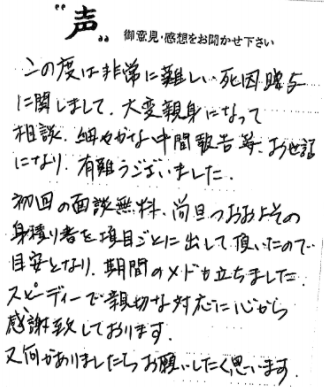 "声"
御意見・感想をお聞かせ下さい
この度は非常に難しい死因贈与
に関しまして、大変親身になって
相談、細やかな中間報告等、お世話
になり、有難うございました。
初回の面談無料、尚且つおおよその
見積り書を項目ごとに出して頂いたので
目安となり、期間のメドが立ちました。
スピーディーで親切な対応に心から
感謝致しております。
又何かありましたらお願いしたく思います。